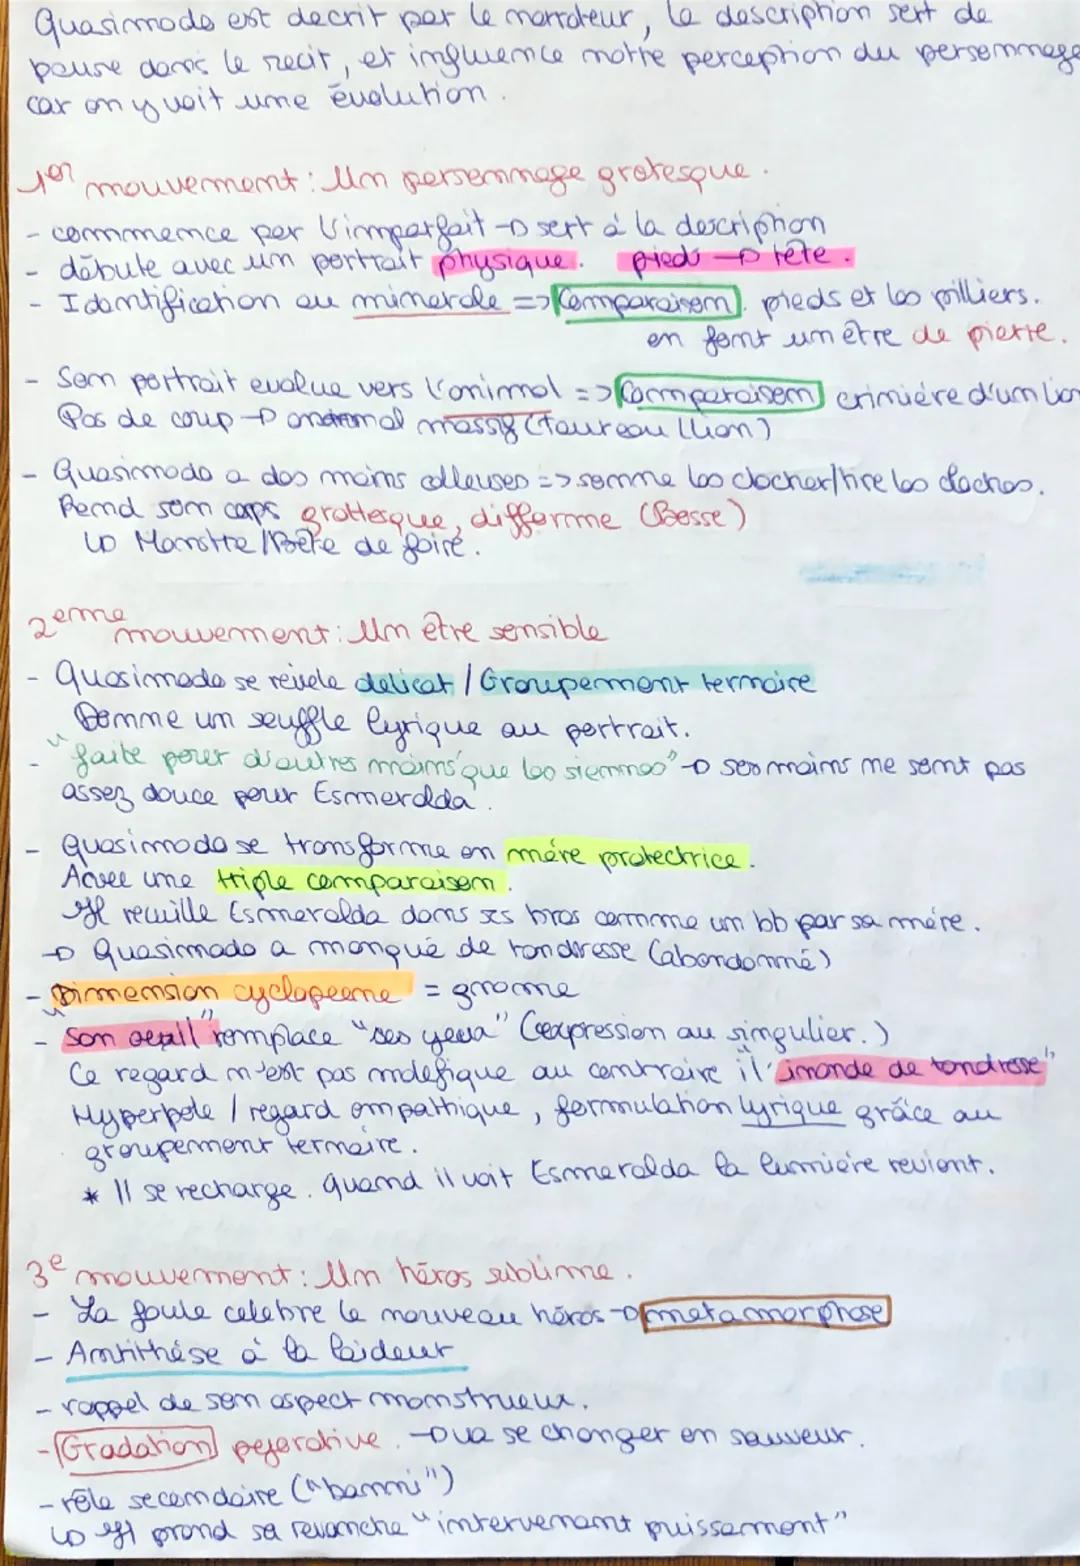 Quasimodo est decrit par le narrateur, la description sert de
pause dans le recit, et influence notre perception du personnage
car on y voit une évolution.
1er mouvement : Un personnage grotesque.
- commence par l'imparfait → sert à la description
- débute avec un portrait physique. pieds → tête.
- Identification au minerale => Comparaison. pieds et les pilliers.
en font un être de pierre.
- Son portrait evolue vers l'animal => Comparaison crinière d'un lion
Pas de coup → animal massif (taureau/lion)
- Quasimodo a des mains calleuses => sonne les clocher/tire les cloches.
Rend son corps grottesque, difforme (Bosse)
↳ Monstre/Bête de foire.
2eme mouvement : Un être sensible
- Quasimodo se révele delicat / Groupement ternaire
Donne un souffle lyrique au portrait.
- "faite pour d'autres mains que les siennes" → ses mains ne sont pas
assez douce pour Esmeralda.
- Quasimodo se transforme en mère protectrice.
Avec une triple comparaison.
Il reccuille Esmeralda dans ses bras comme un bb par sa mère.
→ Quasimodo a manqué de tendresse (abandonné)
- Dimension cyclopeene = gnome
- "Son oeuil" remplace "ses yeux" (expression au singulier.)
Ce regard n'est pas maléfique au contraire il "inonde de tendresse"
Hyperbole / regard empathique, formulation lyrique grâce au
groupement ternaire.
* Il se recharge. Quand il voit Esmeralda la lumière revient.
3e mouvement : Un héros sublime.
- La foule celebre le nouveau héros → metamorphose
- Antithèse à la laideur
- rappel de son aspect monstrueux.
- Gradation pejorative. → va se changer en sauveur.
- rôle secondaire ("banni")
↳ Il prend sa revanche "intervenant puissament"